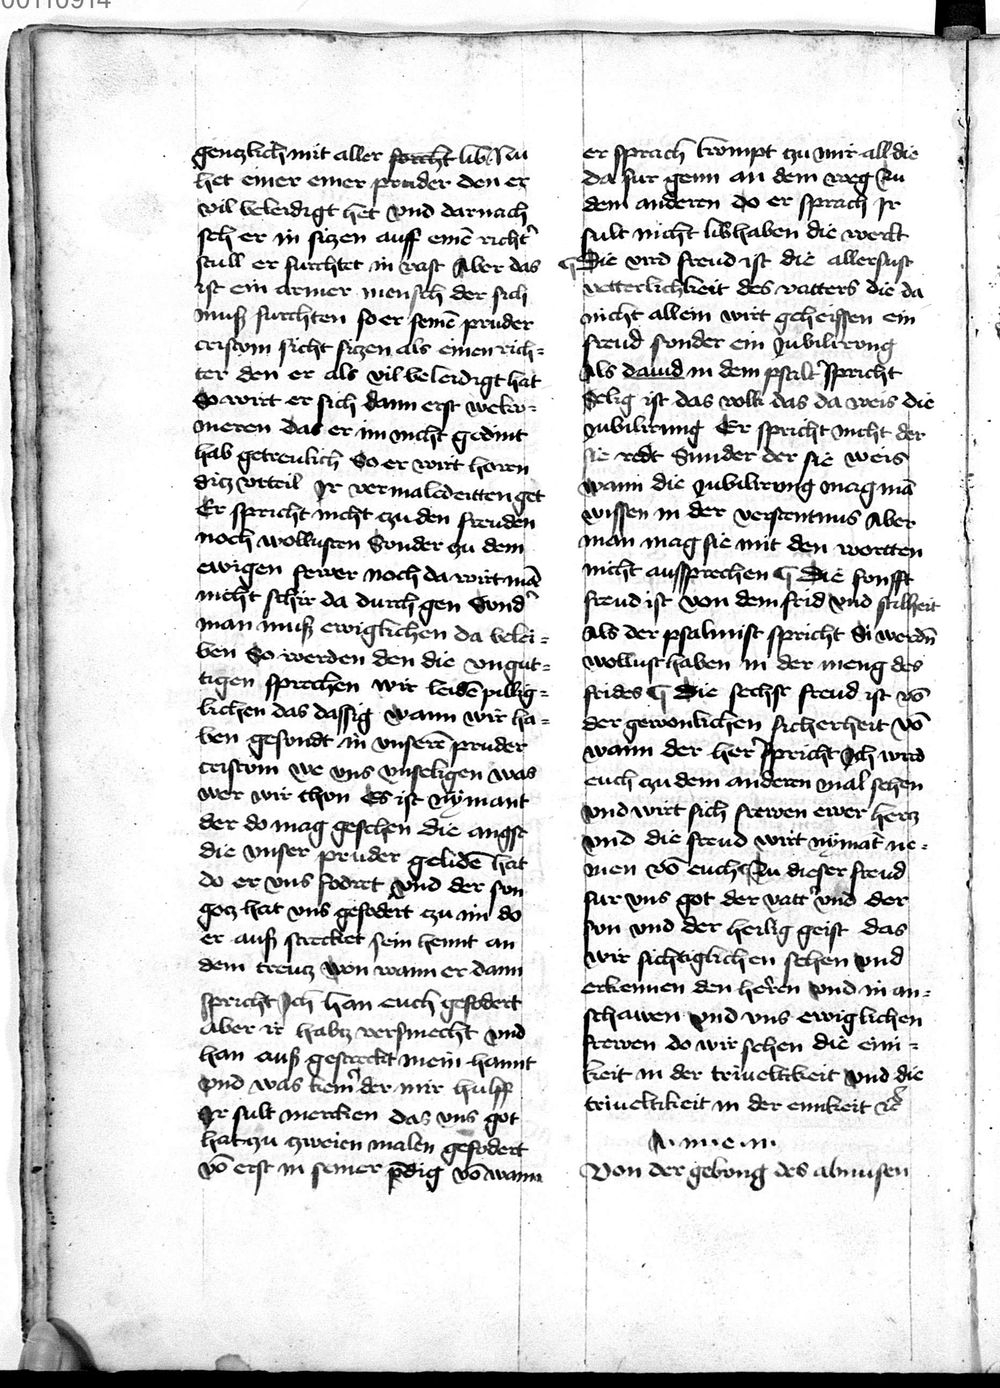 00110914
gentzlich mit aller forcht lib Nu
het einer einer pruder den er
vil beleidigt het vnd darnach
sech er in sizen auff einē richtˀ
stull er furchtet in vast Aber das
ist ein armer mensch der sich
muß furchten so er seinē pruder
cristum sicht sizen als einen rich=
ter den er als vil beleidigt hat
So wirt er sich dann erst wekū=
meren das er im nicht gedint
hab getreulich So er wirt horen
ditz vrteil Ir vermaledeitten get
Er spricht nicht czu den freuden
noch wollusten Sonder zu dem
ewigen fewer noch da wirt mā
nicht schir da durch gen Sondˀ
man muß ewiglichen da belei=
ben So werden den die vngut=
tigen sprechen wir leidē pillig=
lichen das dassig wann wir ha=
ben gesundt in vnserē pruder
cristum we vns vnseligen was
wer wir thun Es ist nÿmant
der do mag gesehen die angst
die vnser pruder gelidē hat
do er vns fodret vnd der sun
gotz hat vns gefodert czu im do
er auß strecket sein hennt an
dem creutz von wann er dann
spricht Ich han euch gefodert
aber ir habtz versmecht vnd
han auß gestreckt mein hannt
vnd was keinˀ der mir hulff
Ir sult mercken das vns got
hat zu zweien malen gefodert
võ erst in seiner p̄dig võ wann
er sprach kompt czu mir all die
da fur genn an dem weg Zu
dem anderen do er sprach Ir
sult nicht libhaben die werlt
Die vird freud ist die allersust
vetterlichkeit des vatters die da
nicht allein wirt geheissen ein
freud sonder ein Iubilirung
Als dauid in dem psaltˀ spricht
Selig ist das volk das da weis die
Iubilirung Er spricht nicht der
sie redt Sunder der sie weis
wann die Iubilirung mag mā
wissen in der verstentnus Aber
man mag sie mit den wortten
nicht aussprechen Die funfft
freud ist von dem frid vnd stilheit
Als der psalmist spricht Si werdn̄
wollust haben in der meng des
frides Die sechst freud ist võ
der gewonlichen sicherheit võ
wann der herˀ spricht Ich wird
euch czu dem anderen mal sehen
vnd wirt sich frewen ewer hertz
vnd die freud wirt nÿmāt ne=
men võ euch Zu dieser freud
fur vns got der vattˀ vnd der
sun vnd der heilig geist das
wir sichtiglichen sehen vnd
erkennen den herren vnd in an=
schawen vnd vns ewiglichen
frewen do wir sehen die eini=
keit in der triueltikeit vnd die
triueltikeit in der einikeit ꝛc
A·m·e·n·
Von der gebung des almusen